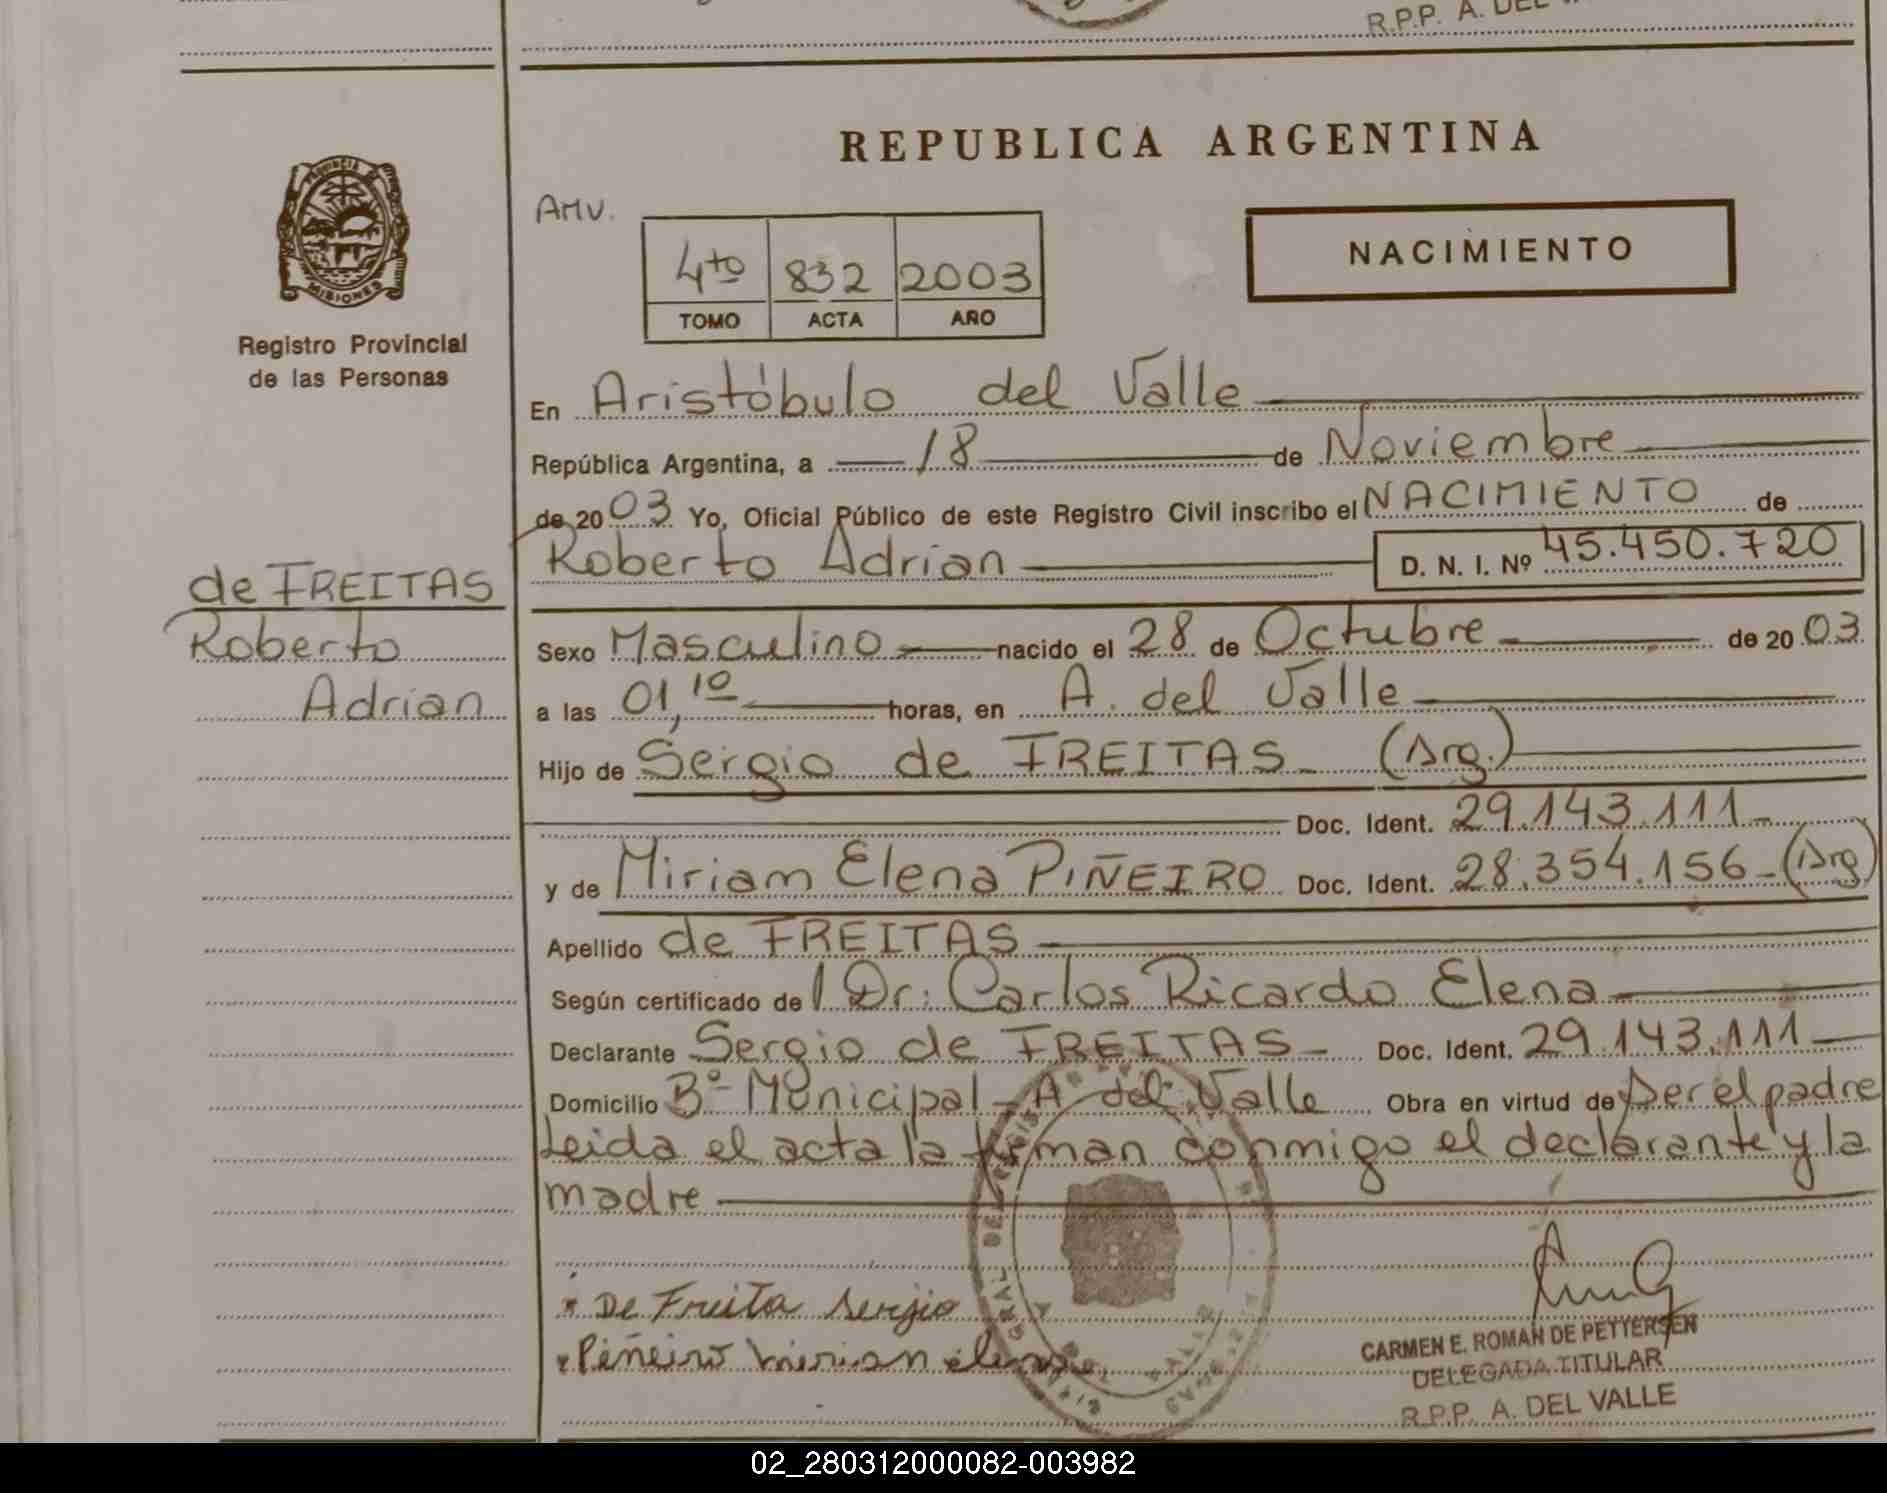 R.P.P. A. DEL
PROVINCIA DE
MISIONES
Registro Provincial
de las Personas
de FREITAS
Roberto
Adrian
REPUBLICA ARGENTINA
AMV.
4to 832 2003
TOMO ACTA AÑO
NACIMIENTO
En Aristóbulo del Valle
República Argentina, a 18 de Noviembre
de 2003 Yo, Oficial Público de este Registro Civil inscribo el NACIMIENTO de
Roberto Adrian D. N. I. Nº 45.450.720
Sexo Masculino nacido el 28 de Octubre de 2003
a las 01,10 horas, en A. del Valle
Hijo de Sergio de FREITAS (Arg.)
Doc. Ident. 29.143.111
y de Miriam Elena PIÑEIRO Doc. Ident. 28.354.156 (Arg)
Apellido de FREITAS
Según certificado de Dr: Carlos Ricardo Elena
Declarante Sergio de FREITAS Doc. Ident. 29.143.111
Domicilio Bº Municipal - A del Valle Obra en virtud de Ser el padre
Leida el acta la firman conmigo el declarante y la
madre
De Freita Sergio
Piñeiro Mirian elena
CARMEN E. ROMAN DE PETTERSEN
DELEGADA TITULAR
R.P.P. A. DEL VALLE
02_280312000082-003982